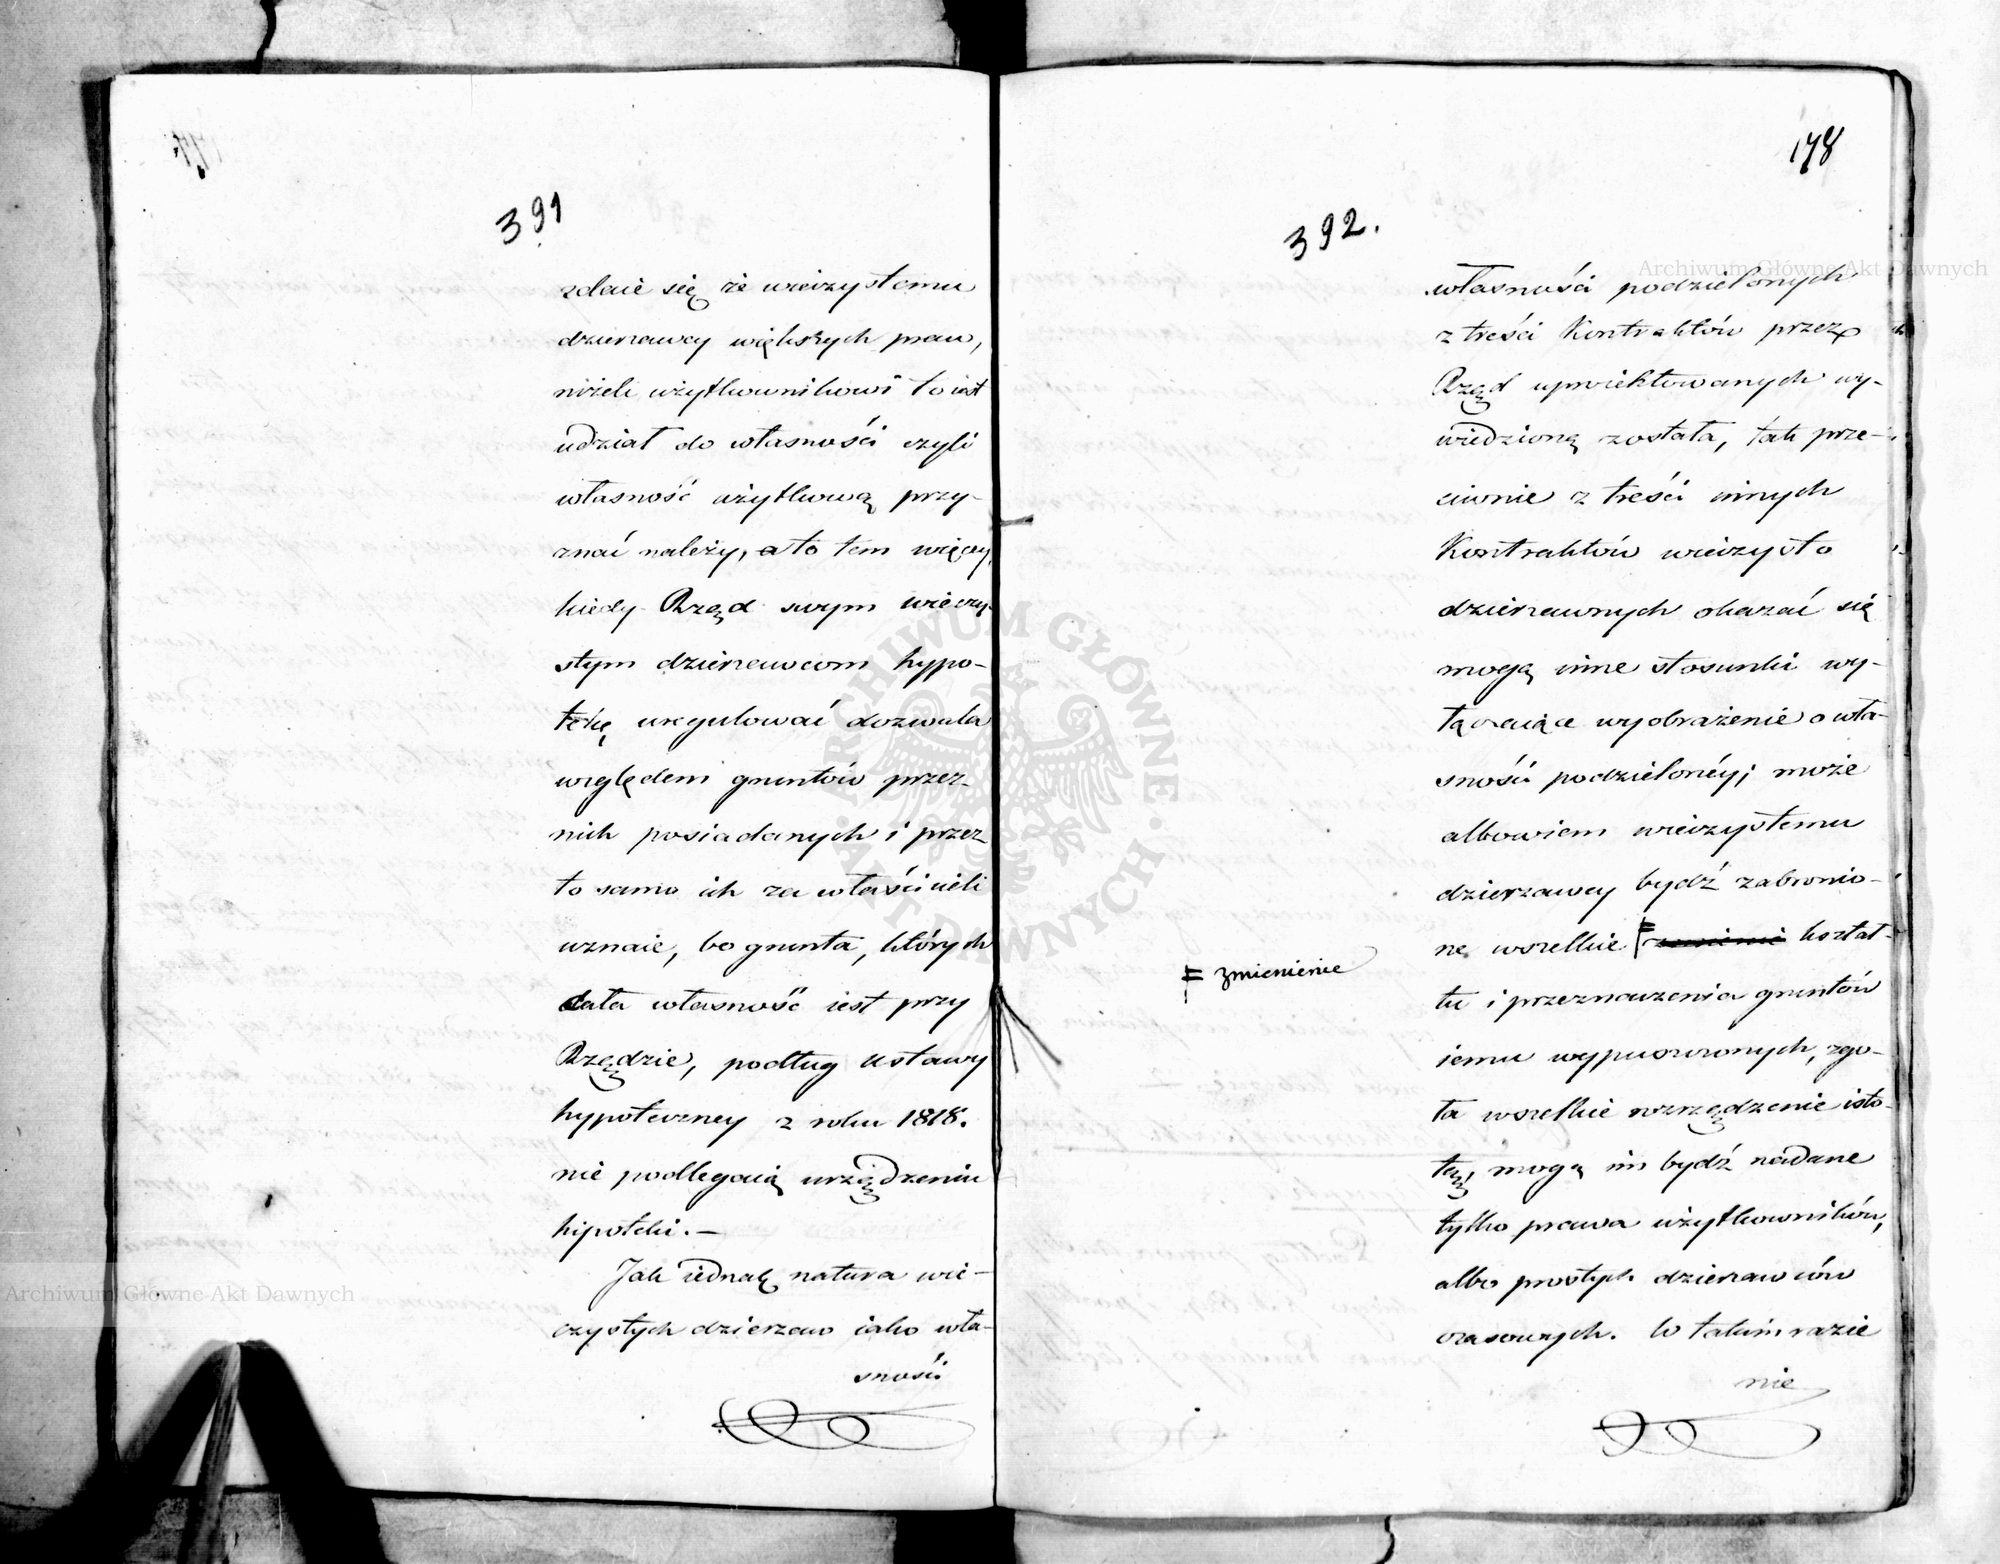 391
zdaie się że wieczystemu
dzierzawcy większych praw,
niżeli użytkownikowi to iest
udział do własności czyli
własność użytkową przy-
znać należy, a to tem więcey,
kiedy Rząd swym wieczy-
stym dzierzawcom hypo-
tekę uregulować dozwala
względem gruntów przez
nich posiadanych i przez
to samo ich za właścicieli
uznaie, bo grunta, których
cała własność iest przy
Rządzie, podług ustawy
hypoteczney z roku 1818.
nie podlegaią urządzeniu
hipoteki.—
Jak iednak natura wie-
czystych dzierzaw iako wła-
sności
178
392.
własności podzielonych
z treści Kontraktów przez
Rząd uproiektowanych wy-
wiedzioną została, tak prze-
ciwnie z treści innych
Kontraktów wieczysto
dzierzawnych okazać się
mogą inne stosunki wy-
łączaiące wyobrażenie o wła-
sności podzielonéy; może
albowiem wieczystemu
dzierzawcy bydź zabronio-
ne wszelkie kształ-
zmienienie
tu i przeznaczenia gruntów
iemu wypuszczonych, zgo-
ła wszelkie rozrządzenie isto-
tą, mogą im bydź nadane
tylko prawa użytkowników,
albo prostych dzierzawców
czasowych. W takim razie
nie
Archiwum Główne Akt Dawnych
Archiwum Główne Akt Dawnych
ARCHIWUM GŁÓWNE · AKT DAWNYCH ·